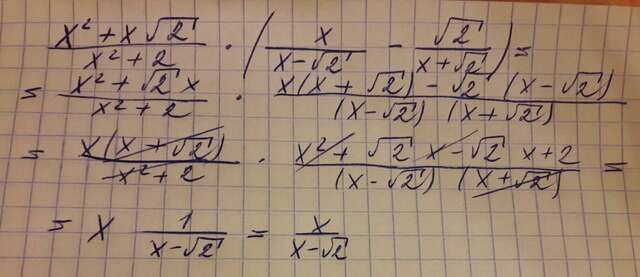 (x² + x√2)/(x² + 2) · (x/(x - √2) - √2/(x + √2)) =
= (x² + √2 x)/(x² + 2) · (x(x + √2) - √2 (x - √2))/((x - √2) (x + √2))
= (x(x + √2))/(x² + 2) · (x² + √2 x - √2 x + 2)/((x - √2) (x + √2)) =
= x 1/(x - √2) = x/(x - √2)